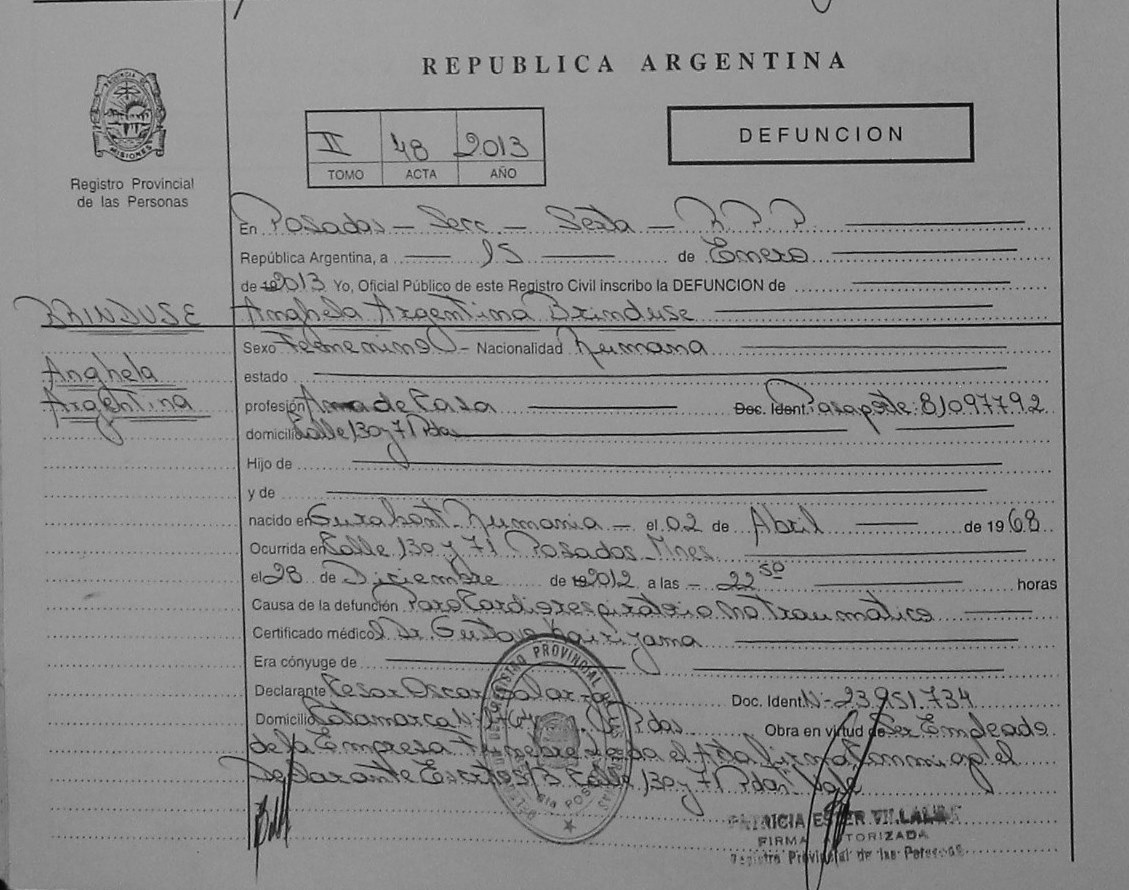 REPUBLICA ARGENTINA
DEFUNCION
II 48 2013
TOMO ACTA AÑO
PROVINCIA DE MISIONES
Registro Provincial
de las Personas
En Posadas - Secc - Sexta - R.P.P.
República Argentina, a 15 de Enero
de 19 2013 Yo, Oficial Público de este Registro Civil inscribo la DEFUNCION de
BRINDUSE
Anghela Argentina Brinduse
Sexo Femenino - Nacionalidad Rumana
Anghela
estado
Argentina
profesión Ama de Casa Doc. Ident. Pasaporte: 81097792
domicilio Calle 130 y 71 Pdas
Hijo de
y de
nacido en Gurahont - Rumania - el 02 de Abril de 1968
Ocurrida en Calle 130 y 71 Posadas Mnes.
el 28 de Diciembre de 19 2012 a las - 22 50 horas
Causa de la defunción Paro Cardiorespiratorio no Traumático
Certificado médico Dr. Gustavo
Era cónyuge de
Declarante Cesar Oscar Doc. Ident. N- 23.951.734
Domicilio Catamarca N: Pdas Obra en virtud de Ser Empleado
de la Empresa Funebre el firma conmigo el
Declarante Calle 130 y 71 Pdas Vale
REGISTRO PROVINCIAL
PATRICIA ESTER VILLALBA
FIRMA AUTORIZADA
Registro Provincial de las Personas